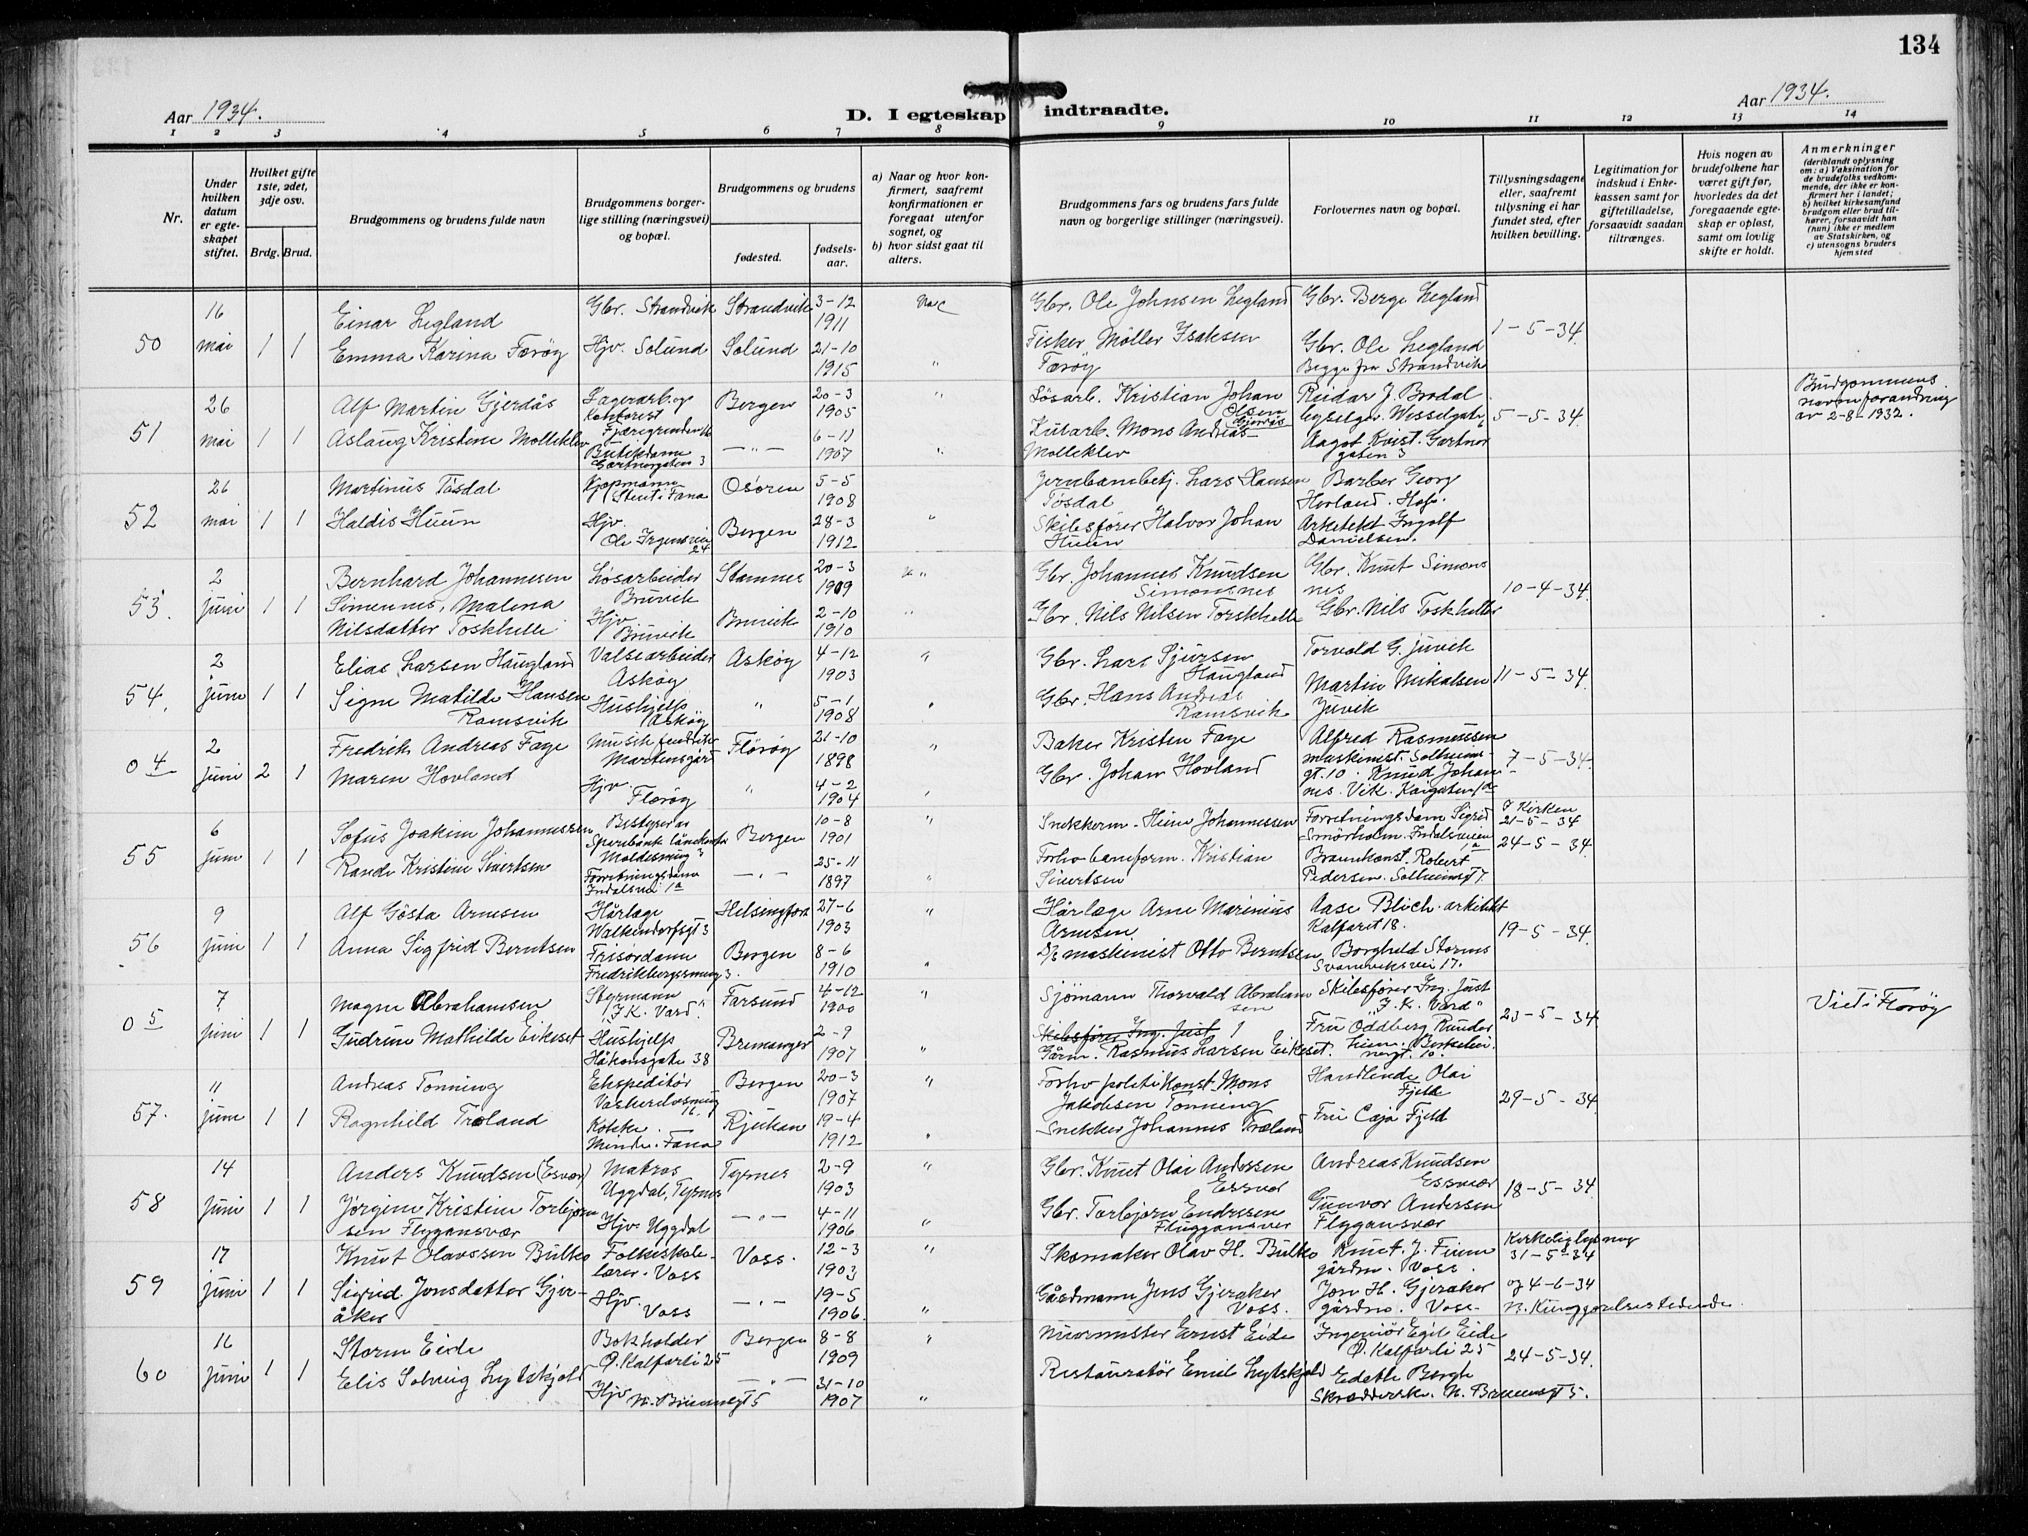 134
Aar 1934.
D. I egteskap indtraadte.
Aar 1934.
1 2 3 4 5 6 7 8 9 10 11 12 13 14
Nr.
Under hvilken datum er egteskapet stiftet.
Hvilket gifte 1ste, 2det, 3dje osv.
Brdg. Brud.
Brudgommens og brudens fulde navn
Brudgommens borgerlige stilling (næringsvei) og bopæl.
Brudgommens og brudens
fødested.
fødselsaar.
a) Naar og hvor konfirmert, saafremt konfirmationen er foregaat utenfor sognet, og
b) hvor sidst gaat til alters.
Brudgommens fars og brudens fars fulde navn og borgerlige stillinger (næringsvei).
Forlovernes navn og bopæl.
Tillysningsdagene eller, saafremt tillysning ei har fundet sted, efter hvilken bevilling.
Legitimation for indskud i Enkekassen samt for giftetilladelse, forsaavidt saadan tiltrænges.
Hvis nogen av brudefolkene har været gift før, hvorledes da det foregaaende egteskap er opløst, samt om lovlig skifte er holdt.
Anmerkninger
(deriblandt oplysning om: a) Vaksination for de brudefolks vedkommende, der ikke er konfirmert her i landet; b) hvilket kirkesamfund brudgom eller brud tilhører, forsaavidt han (hun) ikke er medlem av Statskirken, og c) utensogns bruders hjemsted
50 16 mai 1 1
Einar Legland Gbr. Strandvik Strandvik 3-12 1911
Emma Karina Færøy Hjv. Solund Solund 21-10 1915
Gbr. Ole Johnsen Legland
Fisker Möller Isaksen Færøy
Gbr. Berge Legland
Gbr. Ole Legland
Begge fra Strandvik
1-5-34.
51 26 mai 1 1
Alf Martin Gjerdås Lagerarb. og Bergen 20-3 1905
Aslaug Kristine Molleklev Butikdame Gartnergaten 3 6-11 1907
Lösarb. Kristian Johan Olsen Gjerdås
Mons Andreas Molleklev
Reidar J. Brodal Wesselgate
Aagot Kvist. Gartnergaten 3
5-5-34.
Brudgommens navneforandring av 2-8-1932.
52 26 mai 1 1
Martinus Tösdal Kjøpmann i Fana Osören 5-5 1908
Haldis Huun Hjv. Ole Irgensvei 24 Bergen 28-3 1912
Jernbanebetj. Lars Hansen Tösdal
Skibsfører Halvor Johan Huun
Barber Georg Hovland. Hop.
Arkitekt Ingolf Danielsen.
53. 2 juni 1 1
Bernhard Johannesen Simonnes, Løsarbeider Bruvik Stamnes 20-3 1909
Malena Nilsdatter Toskhelle Hjv. Bruvik Bruvik 2-10 1910
Gbr. Johannes Knudsen Simonsnes
Gbr. Nils Nilsen Torskhelle
Gbr. Knut Simonsnes
Gbr. Nils Toskhelle
10-4-34.
54. 2 juni 1 1
Elias Larsen Haugland Valsearbeider Askøy Askøy 4-12 1903
Signe Matilde Hansen Ramsvik Hushjelp Askøy 5-1 1908
Gbr. Lars Sjursen Haugland
Gbr. Hans Andreas Ramsvik
Torvald G. Juvik
Martin Mikalsen Juvik
11-5-34.
0 4 2 juni 2 1
Fredrik Andreas Fage Florøy 21-10 1898
Maren Hovland Hjv. Florøy 4-2 1904
Baker Kristen Fage
Gbr. Johan Hovland
Alfred Rasmussen maskinist. Solheimsgt. 10.
Knud Johannes Vik. Kaigaten 1a
7-5-34.
55 6 juni 1 1
Sofus Joakim Johannessen Bestyrer av Bergen 10-8 1901
Rande Kristine Sivertsen Forretningsdame Indalsvei 1a 25-11 1897
Snekkerm. Heine Johannessen
Forhv. baneform. Kristian Sivertsen
Forretningsdame Sigrid Smörholm. Indalsveien 1a
Brannkonst. Robert Pedersen. Solheimsgt 7.
I Kirken 21-5-34
24-5-34.
56 9 juni 1 1
Alf Gösta Arnesen Hårlæge Walkendorfsgt 3 Helsingfors 27-6 1903
Anna Sigfrid Berntsen Frisørdame Fredrikbergssmug 3. Bergen 8-6 1910
Hårlæge Arne Marinius Arnesen
D/s maskinist Otto Berntsen
Aase Blich. arkitekt Kalfaret 18.
Borghild Storms Svaneviksvei 17.
19-5-34.
0 5 7 juni 1 1
Magne Abrahamsen Styrmann "I.K. Vard" Farsund 4-12 1900
Gudrun Mathilde Eikeset Hushjelp Håkonsgate 38 Bremanger 2-9 1907
Sjömann Thorvald Abrahamsen
Skibsfører Ing. Juist
Gårm. Rasmus Larsen Eikeset.
Skibsfører Ing. Juist "I.K. Vard"
Fru Oddberg
23-5-34.
Viet i Florøy
57. 11 juni 1 1
Andreas Tonning Ekspeditör Bergen 20-3 1907
Ragnhild Træland Kokke. Minde. Fana Rjukan 19-4 1912
Forhv politi Konst. Mons Jakobsen Tonning
Snekker Johannes Træland
Handlende Olai Fjelde
Fru Caja Fjeld
29-5-34.
58 14 juni 1 1
Anders Knudsen (Esvær) Matros Uggdal, Tysnes Tysnes 2-9 1903
Jörgine Kristine Torbjørnsen Flygansvær Hjv. Uggdal 4-11 1906
Gbr. Knut Olai Andersen Essvær
Gbr. Torbjørn Endressen Fluggansver
Andreas Knudsen Essvær
Gunvor Andersen Flygansvær
18-5-34.
59 17 juni 1 1
Knut Olavssen Bulko Folkeskolelærer. Voss Voss. 12-3 1903
Sigrid Jonsdatter Gjeråker Hjv. Voss 19-5 1906.
Skomaker Olav H. Bulko
Gårdmann Jens Gjeraker Voss.
Knut. J. Finne gårdm. Voss.
Jon H. Gjeraker gårdm. Voss
Kirkelig lysning 31-5-34 og 4-6-34
60 16 juni 1 1
Storm Eide Bokholder Ø. Kalfarli 25 Bergen 8-8 1909
Elis Solveig Lytskjold Hjv. 31-10 1907
Murmester Ernst Eide
Restauratör Emil Lytskjold
Ingeniör Egil Eide Ø. Kalfarli 25
Edeth Borgh
24-5-34.